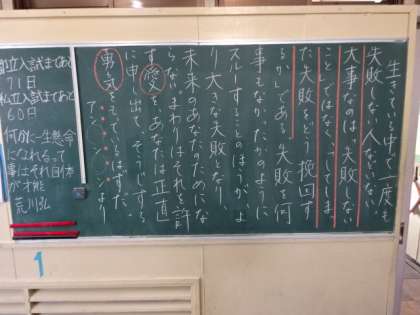 生きている中で一度も
失敗しない人などいない。
大事なのは、失敗しない
ことではなく、してしまっ
た失敗をどう挽回す
るかである。失敗を何
事もなかったかのように
スルーすることのほうが、よ
り大きな失敗となり、
未来のあなたのためにな
らない。まわりはそれを許
す愛を、あなたは正直
に申し出て、そうじする
勇気をもっているはずだ。
アン〇〇〇〇より
都立入試まであと
71日
私立入試まであと
60日
何かに一生懸命
になれるって
事はそれ自体
が才能
荒川弘
1